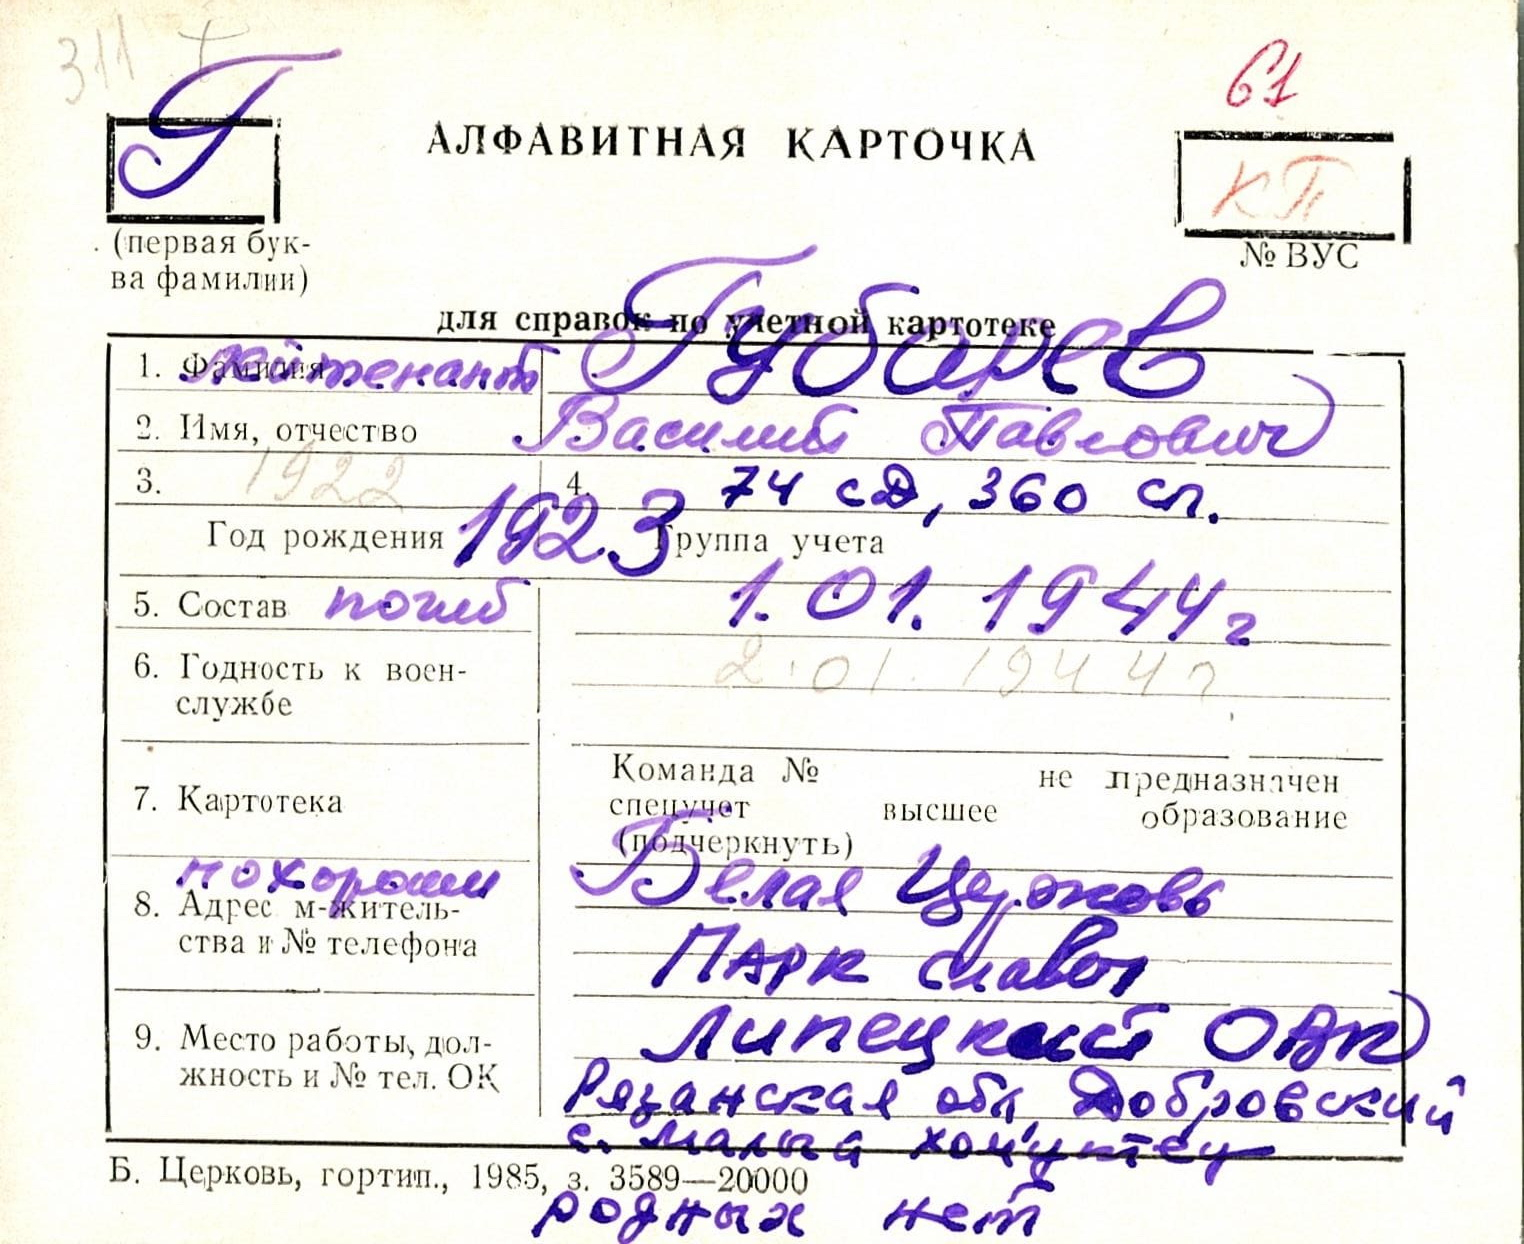 311 Г 61
АЛФАВИТНАЯ КАРТОЧКА
КП
(первая бук-
ва фамилии)
№ ВУС
для справок по учетной картотеке
1. Фамилия лейтенант Губарев
2. Имя, отчество Василий Павлович
3. 1922 4. 74 сд, 360 сп.
Год рождения 1923 Группа учета
5. Состав погиб 1.01.1944г
2.01.1944г
6. Годность к воен-
службе
Команда № не предназначен
7. Картотека спецучет высшее образование
(подчеркнуть)
похорон Белая Церковь
8. Адрес м-житель-
ства и № телефона
Парк славы
Липецкий ОВК
9. Место работы, дол-
жность и № тел. ОК
Рязанская обл Добровский
с. Малый хомутец
Б. Церковь, гортип., 1985, з. 3589—20000
родных нет